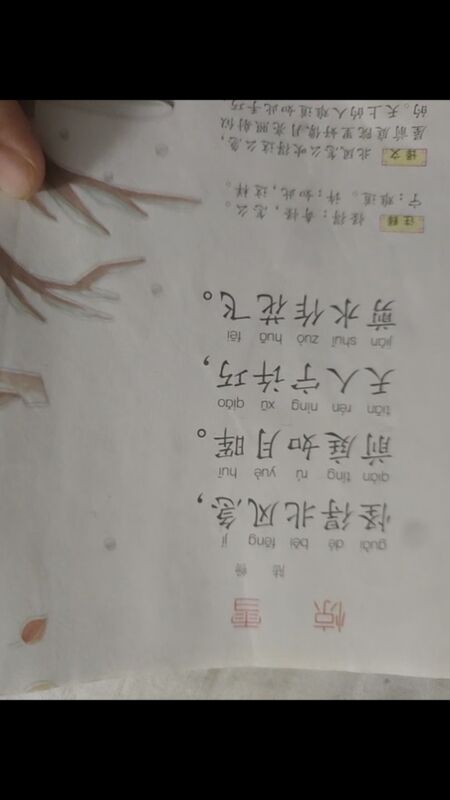 惊雪
陆
guài dé běi fēng jí
怪得北风急，
qián tíng rú yuè huī
前庭如月晖。
tiān rén nìng xǔ qiǎo
天人宁许巧，
jiǎn shuǐ zuò huā fēi
剪水作花飞。
注释 怪得：奇怪，怎么。
宁：难道。许：如此，这样。
译文 北风怎么吹得这么急，
屋前庭院里好像月光照射似
的。天上的人难道如此手巧，